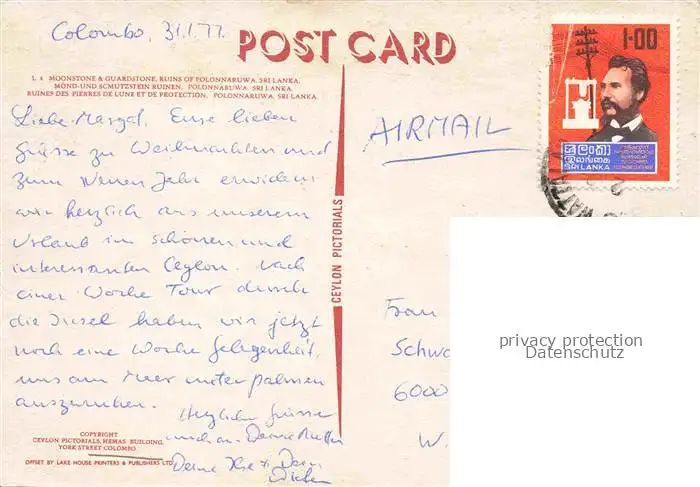 Colombo, 31.1.77.
POST CARD
L 4 MOONSTONE & GUARDSTONE, RUINS OF POLONNARUWA, SRI LANKA.
MOND-UND SCHUTZSTEIN RUINEN, POLONNARUWA, SRI LANKA.
RUINES DES PIERRES DE LUNE ET DE PROTECTION, POLONNARUWA, SRI LANKA.
Liebe Margot, Eure lieben
Grüsse zu Weihnachten und
zum Neuen Jahr erwidern
wir herzlich aus unserem
Urlaub im schönen und
interessanten Ceylon. Nach
einer Woche Tour durch
die Insel haben wir jetzt
noch eine Woche Gelegenheit,
uns am Meer unter Palmen
auszuruhen.
Herzliche Grüsse
auch an Deine Mutter
Deine Ilse +
COPYRIGHT
CEYLON PICTORIALS, HEMAS BUILDING,
YORK STREET COLOMBO
OFFSET BY LAKE HOUSE PRINTERS & PUBLISHERS LTD
CEYLON PICTORIALS
AIRMAIL
1·00
ශ්‍රී ලංකා
இலங்கை
SRI LANKA
Frau
Schw
6000
W.
privacy protection
Datenschutz